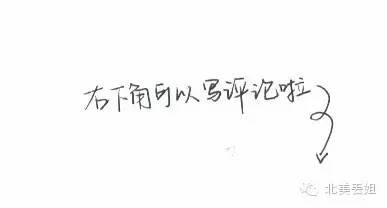 右下角可以写评论啦
北美丢姐